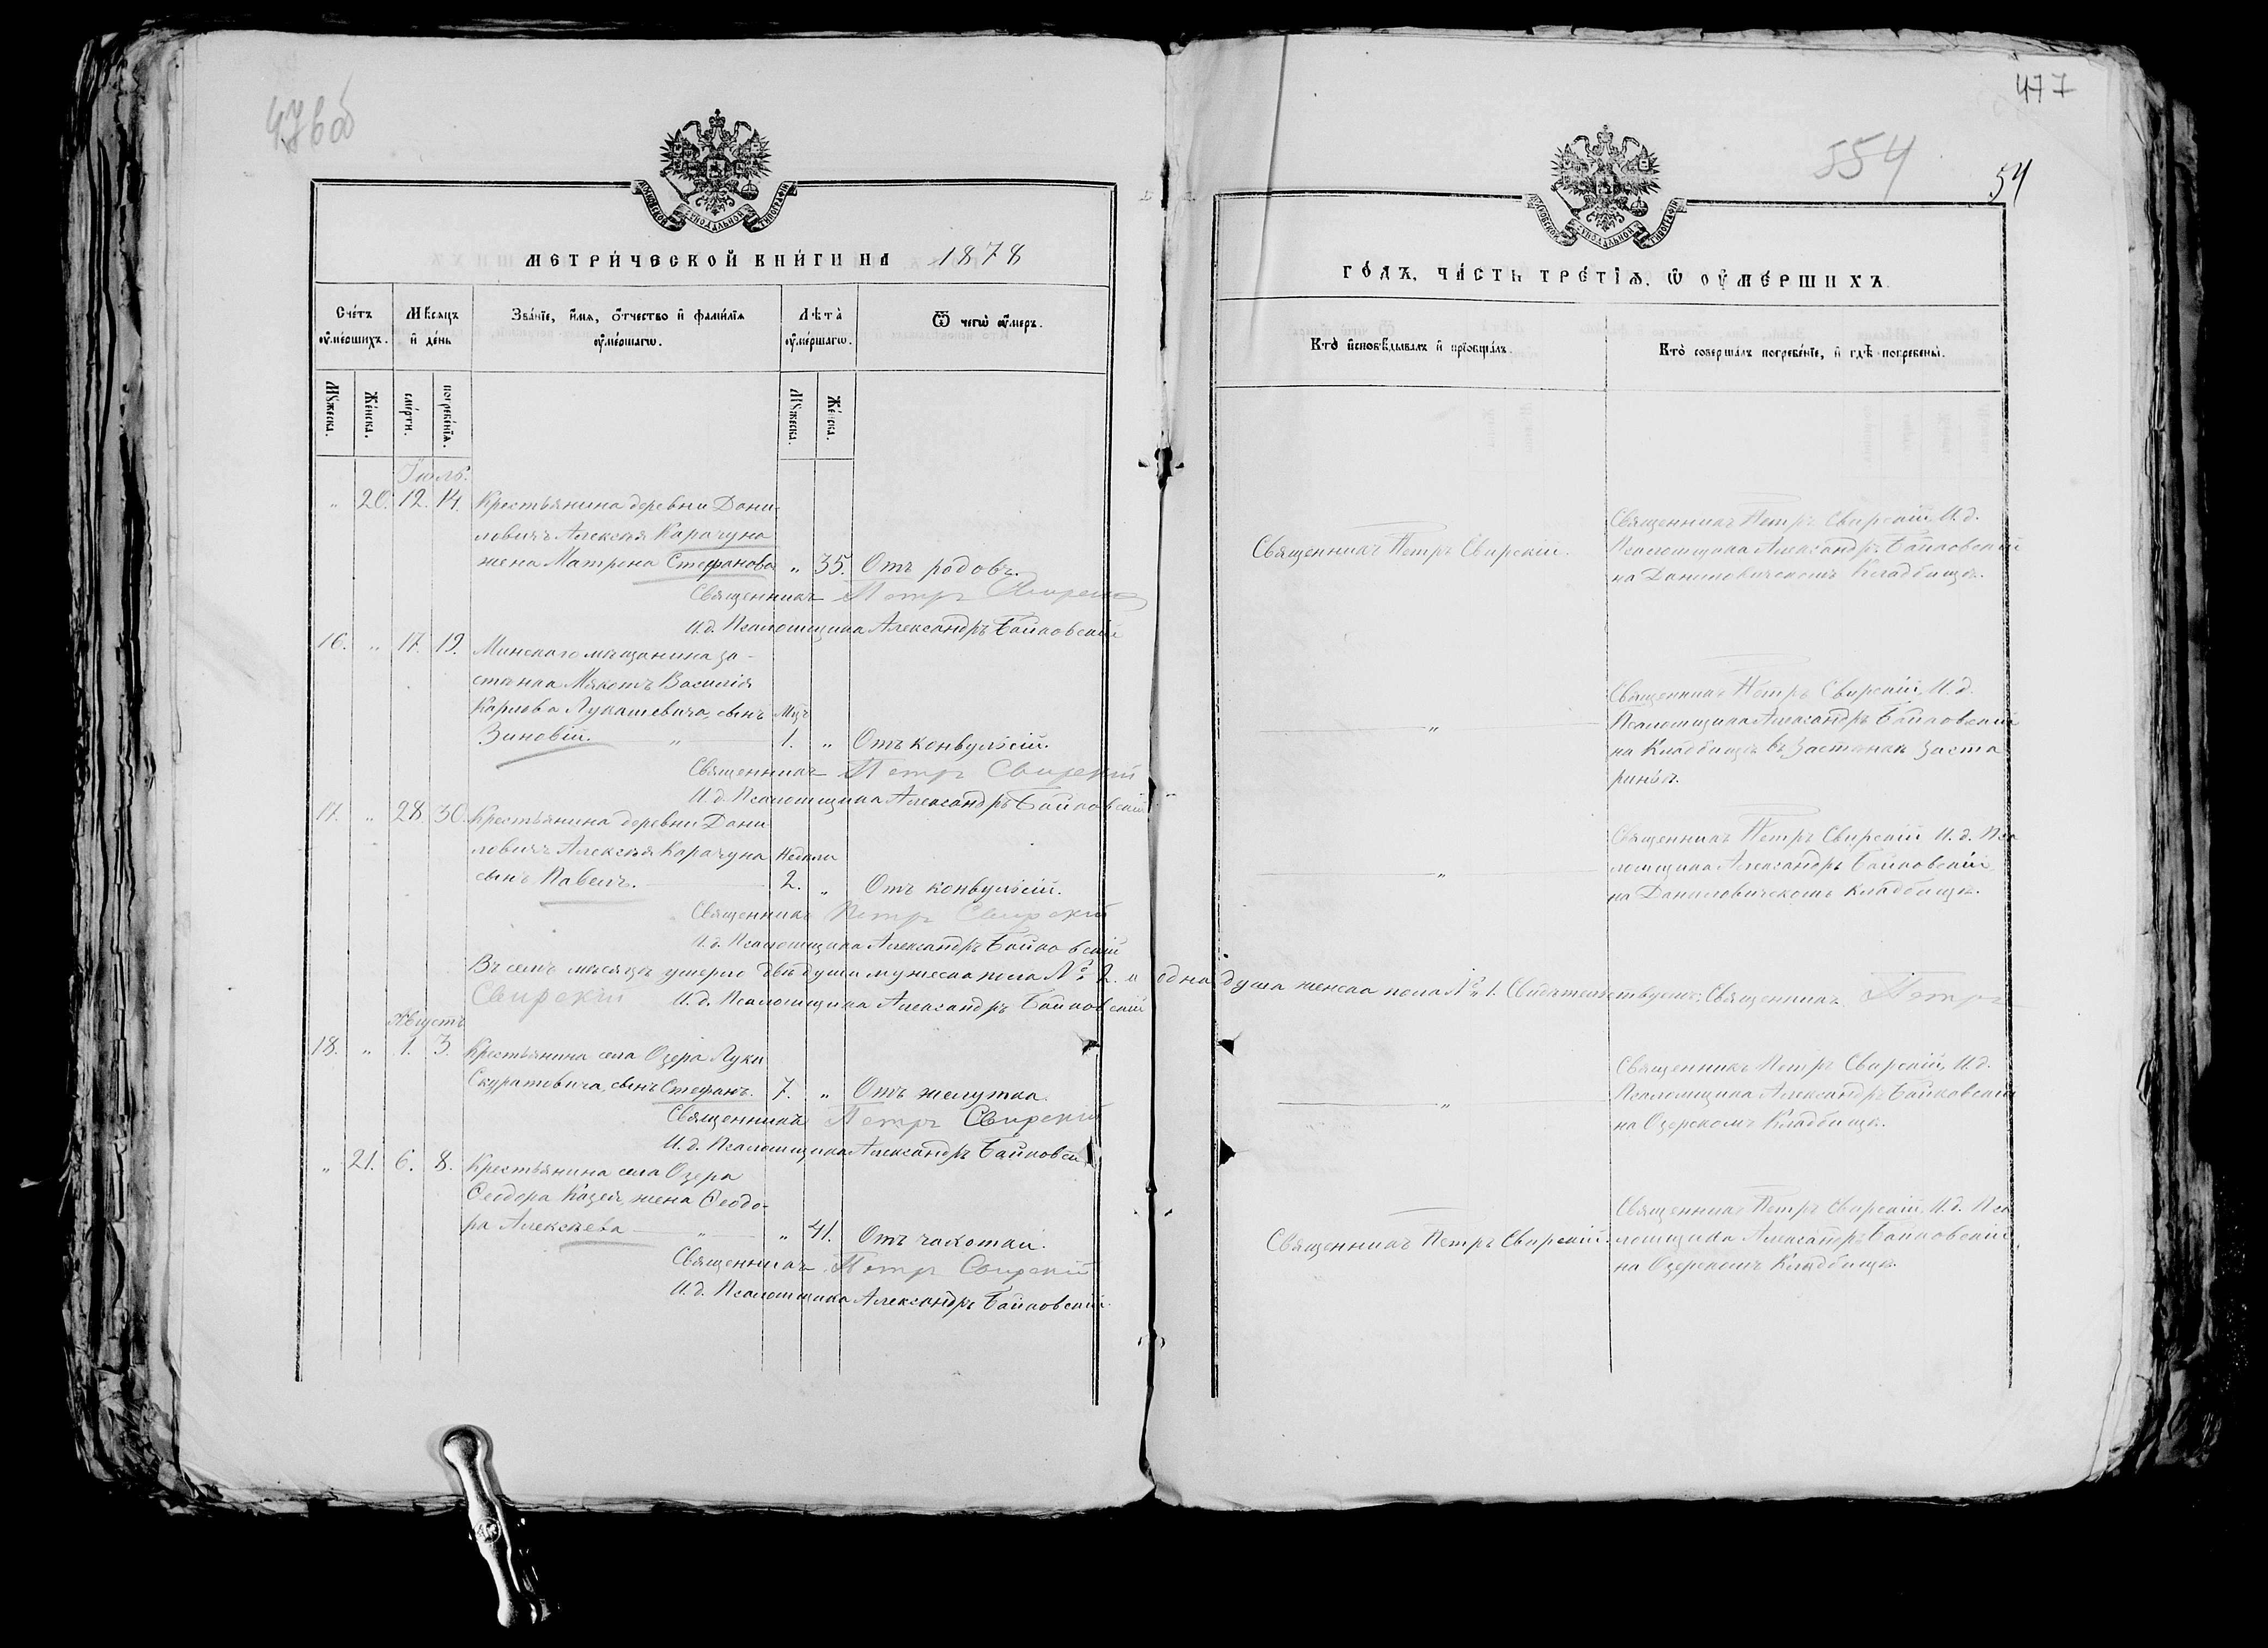 476об
МОСКОВСКОЙ СѴНОДАЛЬНОЙ ТИПОГРАФІИ
МЕТРИ́ЧЕСКОЙ КНИ́ГИ НА 1878
Сче́тъ ᲂу҆ме́ршихъ.
Мѣ́сяцъ и҆ де́нь
Зва́нїе, и҆́мя, ѻ҆́тчество и҆ фами́лїя ᲂу҆ме́ршагѡ.
Лѣ́та ᲂу҆ме́ршагѡ.
Ѿ чегѡ̀ ᲂу҆́меръ.
Мꙋ́жеска.
Же́нска.
сме́рти.
погребе́нїѧ.
Мꙋ́жеска.
Же́нска.
Іюль.
„ 20. 12. 14. Крестьянина деревни Дани-
ловичъ Алексѣя Карачуна
жена Матрена Стефанова „ 35. Отъ родовъ.
Священникъ Петръ Свирскій
И.д. Псаломщика Александръ Байковскій
16. „ 17. 19. Минскаго мѣщанина за-
стѣнка Мякотъ Василія
Карлова Лукашевича, сынъ Мѣц
Зиновій. „ 1. „ Отъ конвульсій.
Священникъ Петръ Свирскій
И.д. Псаломщика Александръ Байковскій
17. „ 28. 30. Крестьянина деревни Дани
ловичъ Алексѣя Карачуна Недѣли
сынъ Павелъ. 2. „ Отъ конвульсій.
Священникъ Петръ Свирскій
И.д. Псаломщика Александръ Байковскій
Въ семъ мѣсяцѣ умерло двѣ души мужеска пола № 2. и одна душа женска пола № 1. Свидѣтельствуемъ: Священникъ Петръ
Свирскій И.д. Псаломщика Александръ Байковскій
Августъ
18. „ 1. 3. Крестьянина села Озера Луки
Скуратовича, сынъ Стефанъ. 7. „ Отъ желудка.
Священникъ Петръ Свирскій
И.д. Псаломщика Александръ Байковскій
„ 21. 6. 8. Крестьянина села Озера
Ѳеодора Кацея, жена Ѳеодо-
ра Алексѣева „ „ 41. Отъ чахотки.
Священникъ Петръ Свирскій
И.д. Псаломщика Александръ Байковскій
477
554
54
МОСКОВСКОЙ СѴНОДАЛЬНОЙ ТИПОГРАФІИ
ГО́ДЪ, ЧА́СТЬ ТРЕ́ТЇѦ, Ѡ҆ ОУ҆МЕ́РШИХЪ.
Кто̀ и҆сповѣ́дывалъ и҆ прїѡбща́лъ.
Кто̀ соверша́лъ погребе́нїе, и҆ гдѣ̀ погребены̀.
Священникъ Петръ Свирскій.
Священникъ Петръ Свирскій, И.д.
Псаломщика Александръ Байковскій
на Даниловичскомъ Кладбищѣ.
„
Священникъ Петръ Свирскій, И.д.
Псаломщика Александръ Байковскій
на Кладбищѣ въ Застѣнкѣ Заста
риньѣ.
„
Священникъ Петръ Свирскій И.д. Пса
ломщика Александръ Байковскій
на Даниловичскомъ Кладбищѣ.
„
Священникъ Петръ Свирскій, И.д.
Псаломщика Александръ Байковскій
на Озерскомъ Кладбищѣ.
Священникъ Петръ Свирскій.
Священникъ Петръ Свирскій, И.д. Пса
ломщика Александръ Байковскій,
на Озерскомъ Кладбищѣ.